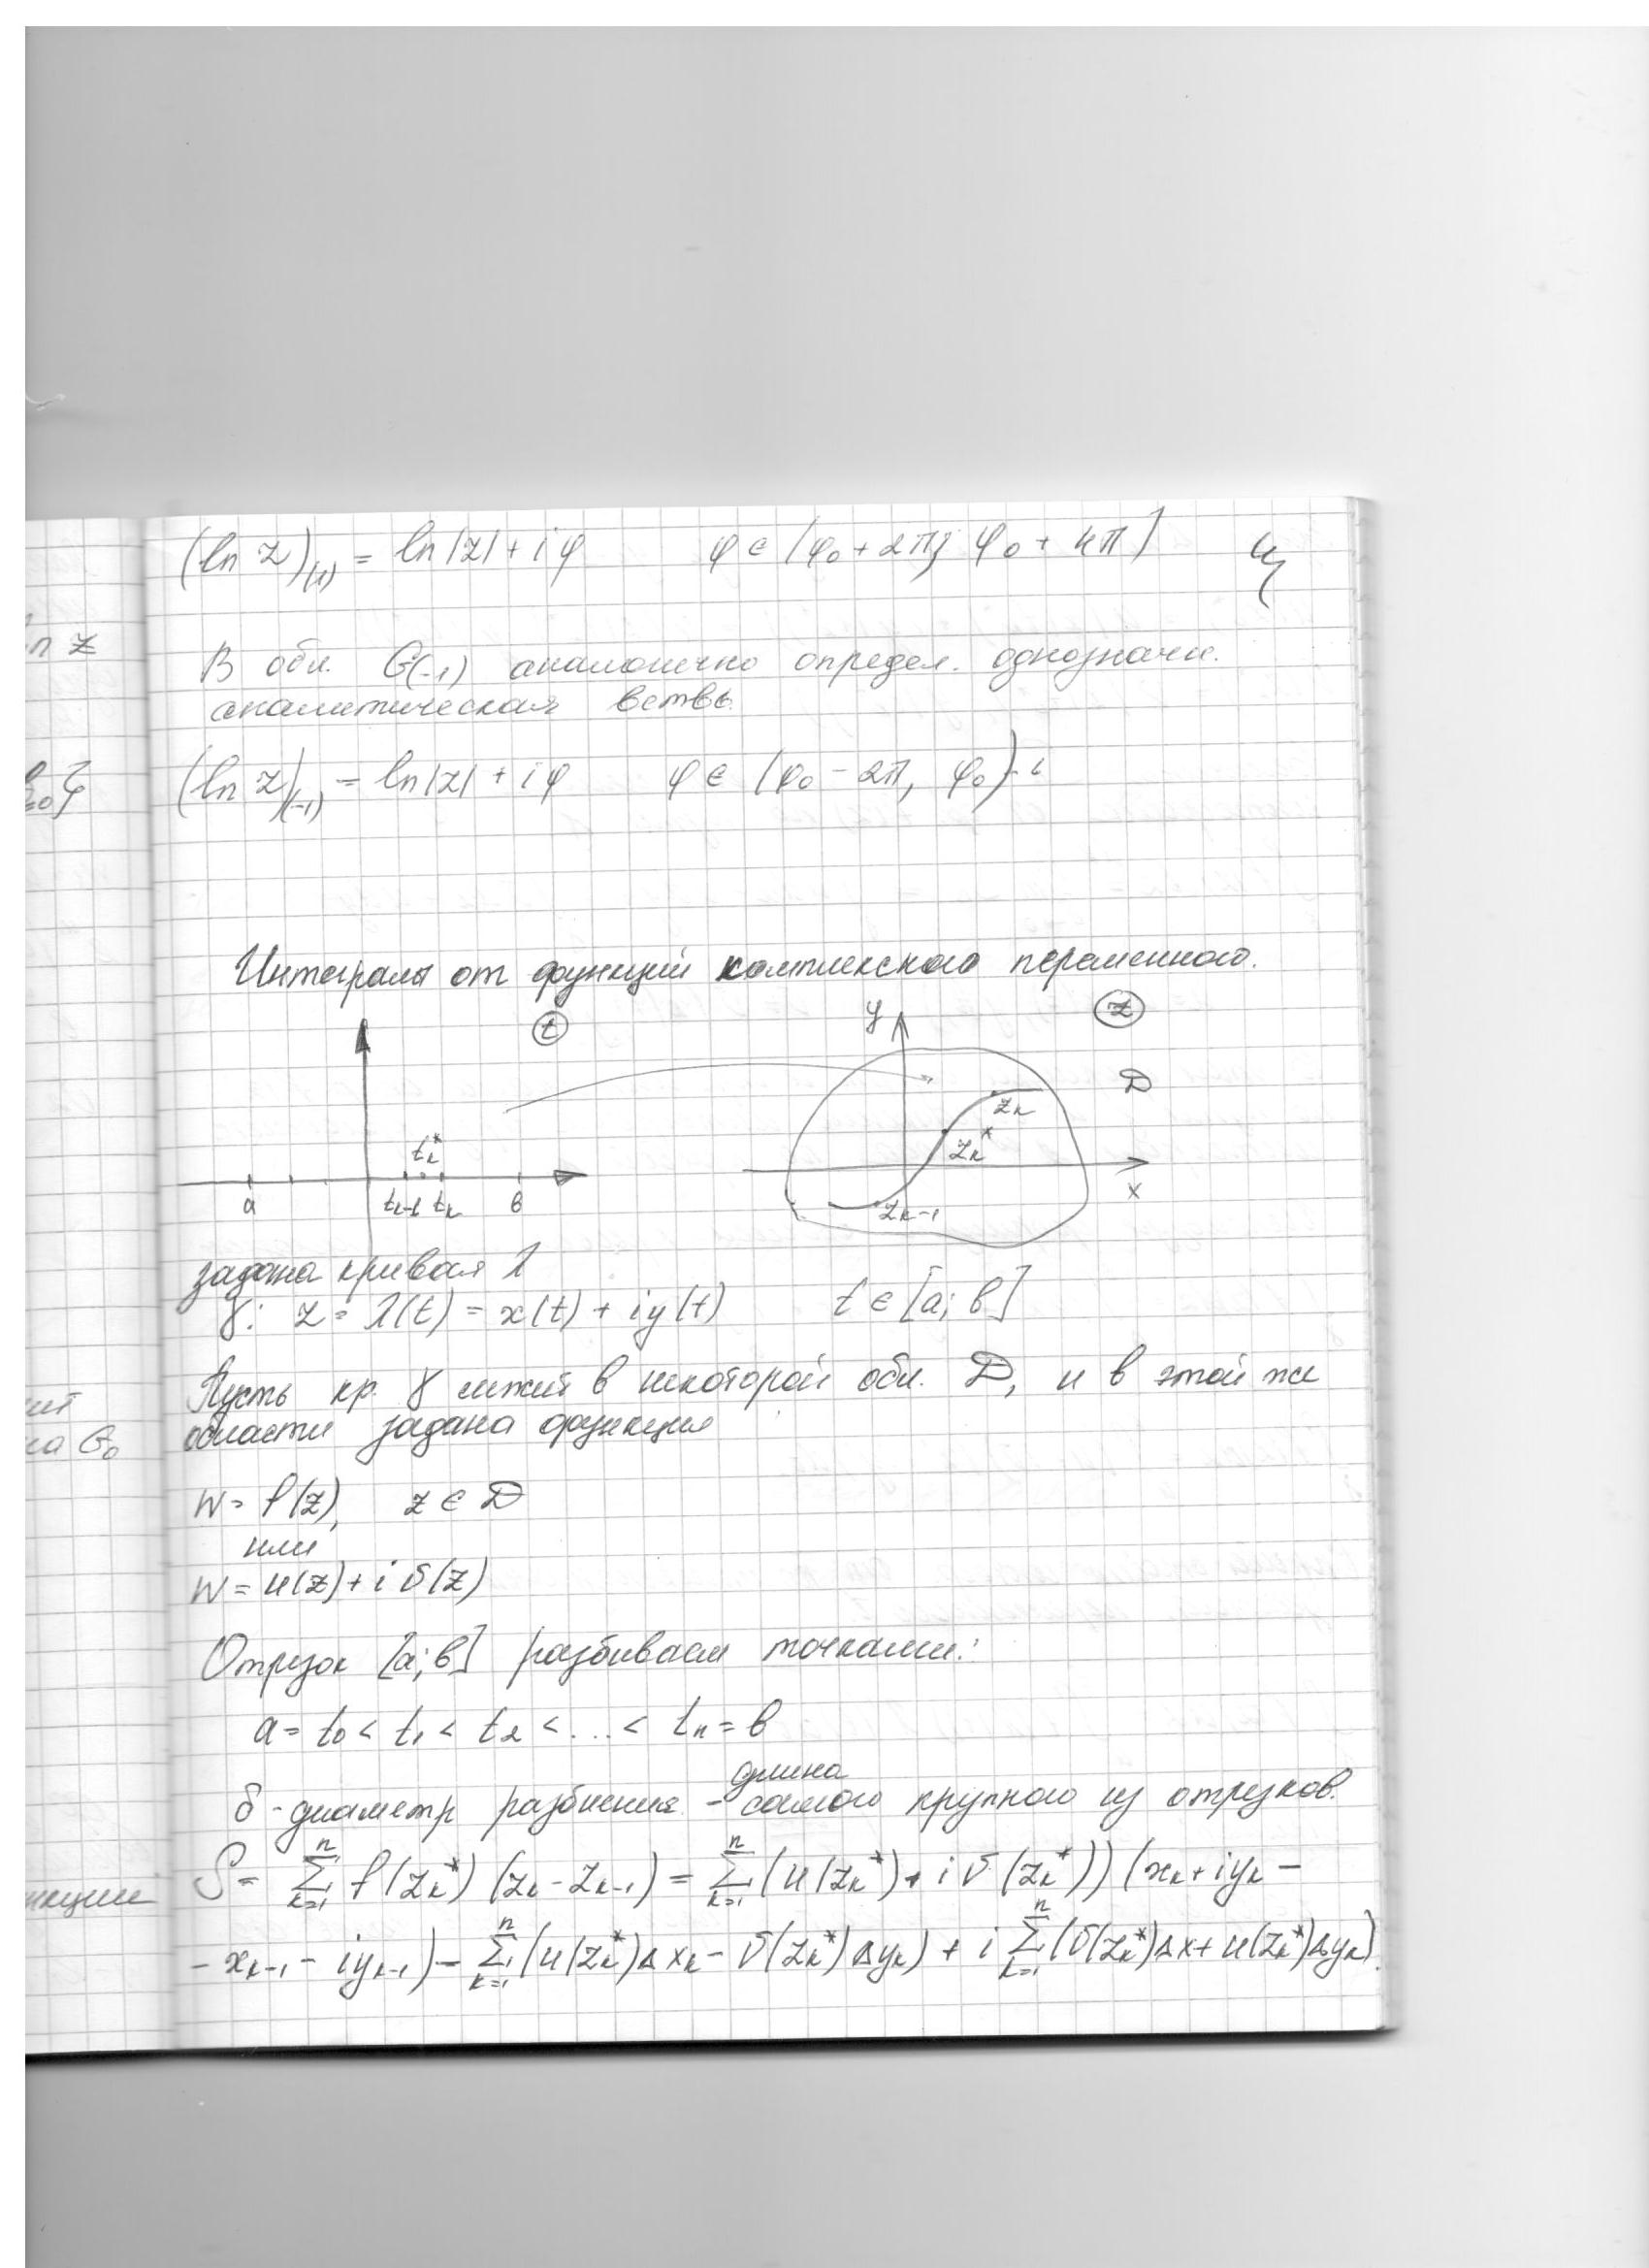 (ln z)₍₁₎ = ln|z| + iφ φ ∈ (φ₀ + 2π; φ₀ + 4π)
n z
В обл. G(-1) аналогично определ. однозначн.
аналитическая ветвь.
(ln z)₍₋₁₎ = ln|z| + iφ φ ∈ (φ₀ - 2π, φ₀)
Интегралы от функций комплексного переменного.
t y z
D
t*ₖ zₖ
z*ₖ
a tₖ₋₁ tₖ в zₖ₋₁ x
задана кривая λ
γ: z = λ(t) = x(t) + iy(t) t ∈ [a; в]
Пусть кр. γ лежит в некоторой обл. D, и в этой же
области задана функция
на G₀
W = f(z), z ∈ D
или
W = u(z) + i v(z)
Отрезок [a; в] разбиваем точками:
a = t₀ < t₁ < t₂ < ... < tₙ = в
длина
δ - диаметр разбиения - самого крупного из отрезков.
S = ∑ₖ₌₁ⁿ f(z*ₖ) (zₖ - zₖ₋₁) = ∑ₖ₌₁ⁿ (u(z*ₖ) + i v(z*ₖ)) (xₖ + iyₖ -
- xₖ₋₁ - iyₖ₋₁) = ∑ₖ₌₁ⁿ (u(z*ₖ)Δxₖ - v(z*ₖ)Δyₖ) + i ∑ₖ₌₁ⁿ (v(z*ₖ)Δx + u(z*ₖ)Δyₖ).